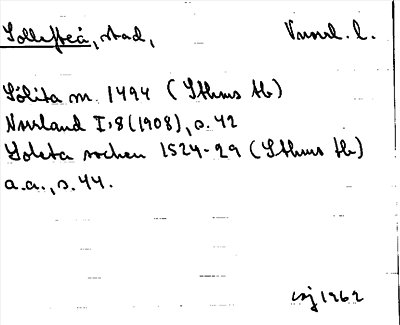 Sollefteå, stad,
Sólita m. 1494 (Sthms tb)
Norrland I:8 (1908), s. 42
Soleta sochen 1524-29 (Sthms tb)
a.a., s. 44.
1962